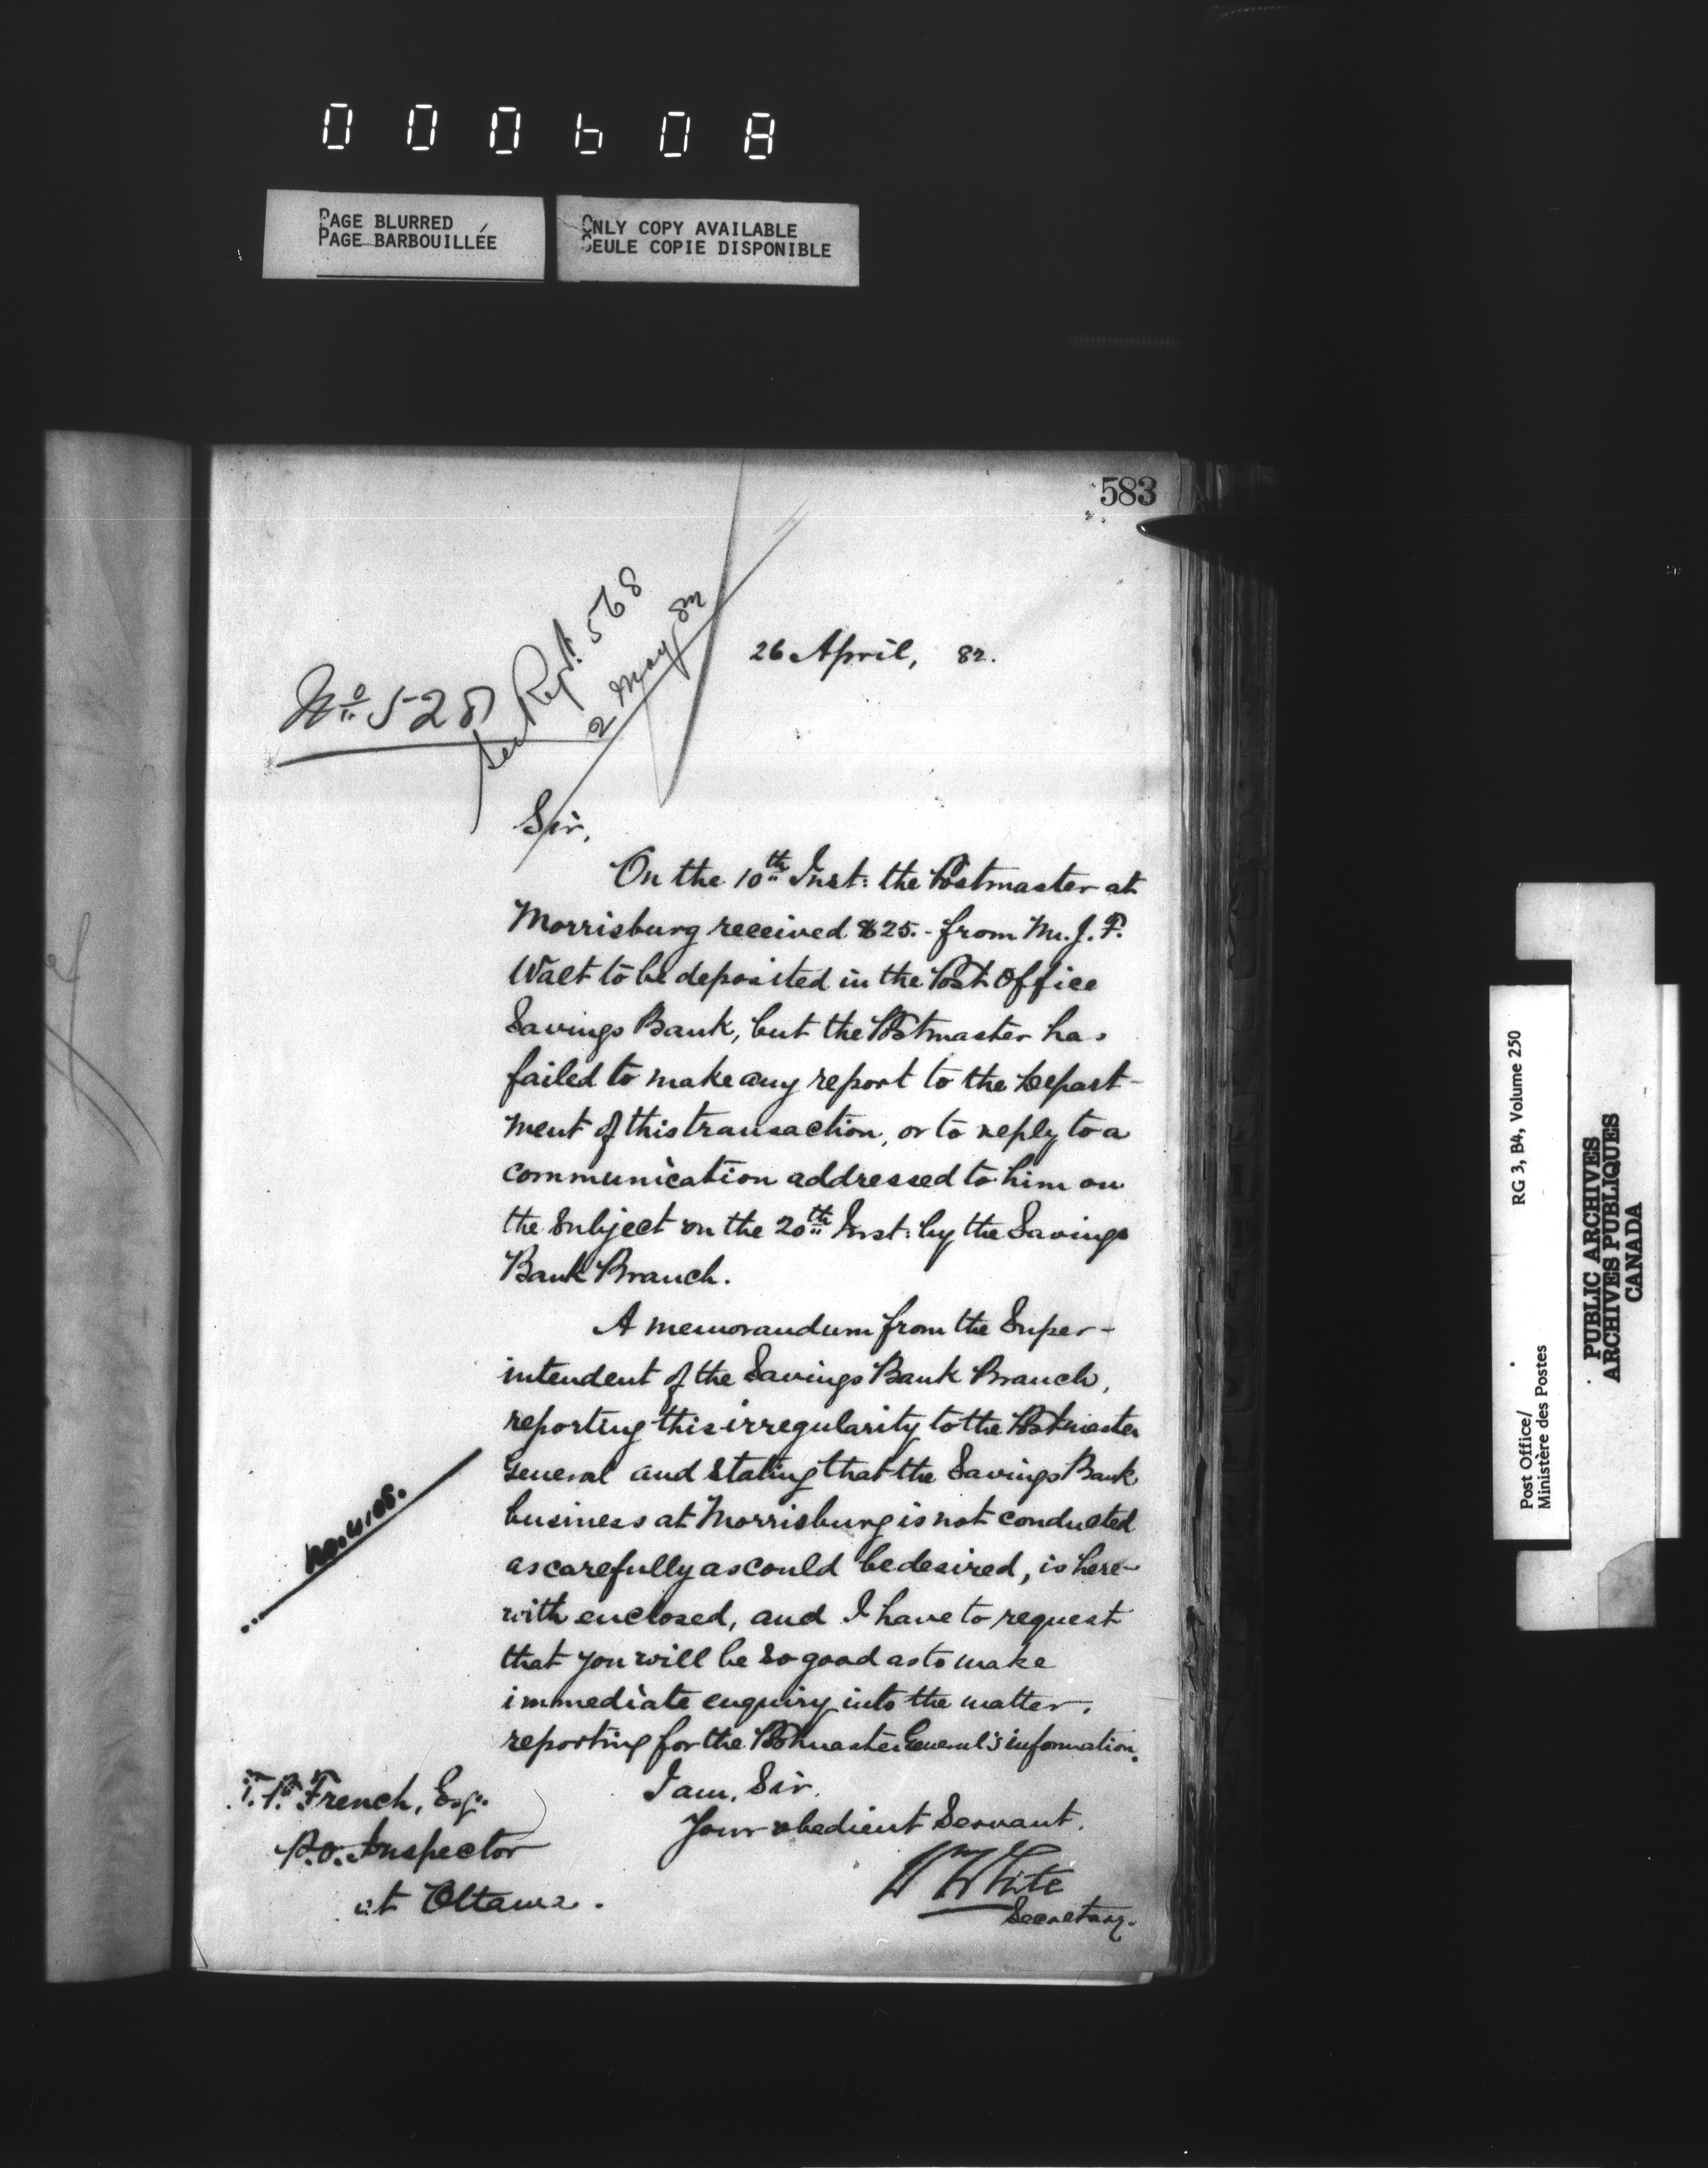 000608
PAGE BLURRED
PAGE BARBOUILLÉE
ONLY COPY AVAILABLE
SEULE COPIE DISPONIBLE
583
26 April, 82.
No 528
See Rept. 568
2 May 82
Sir,
On the 10th Inst: the Postmaster at
Morrisburg received $25.- from Mr. J. F.
Walt to be deposited in the Post Office
Savings Bank, but the Postmaster has
failed to make any report to the Depart-
ment of this transaction, or to reply to a
communication addressed to him on
the subject on the 20th Inst: by the Savings
Bank Branch.
A memorandum from the Super-
intendent of the Savings Bank Branch,
reporting this irregularity to the Postmaster
General and stating that the Savings Bank
business at Morrisburg is not conducted
as carefully as could be desired, is here-
with enclosed, and I have to request
that you will be so good as to make
immediate enquiry into the matter,
reporting for the Postmaster General's information.
I am, Sir,
Your obedient Servant,
W White
Secretary.
T. P. French, Esq.
P.O. Inspector
at Ottawa.
RG 3, B4, Volume 250
Post Office/
Ministère des Postes
PUBLIC ARCHIVES
ARCHIVES PUBLIQUES
CANADA